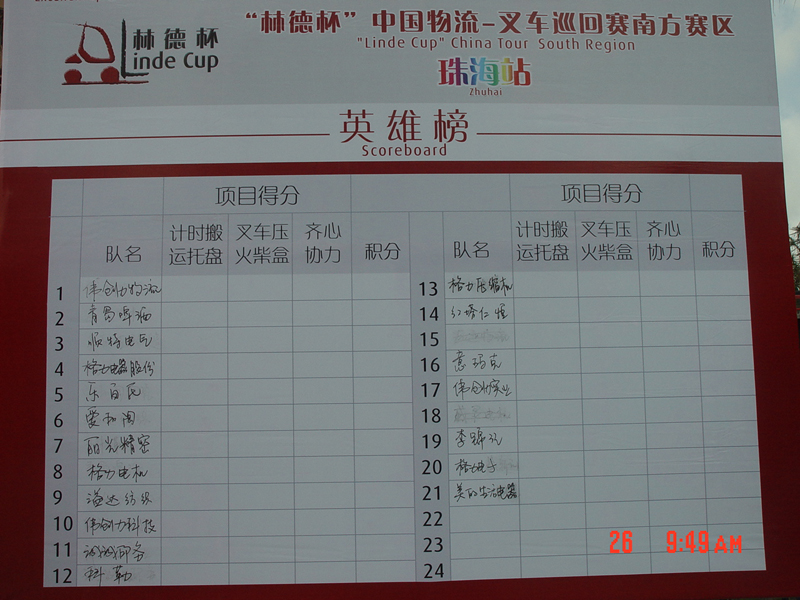 林德杯
Linde Cup
“林德杯”中国物流-叉车巡回赛南方赛区
"Linde Cup" China Tour South Region
珠海站
Zhuhai
英雄榜
Scoreboard
项目得分 项目得分
队名 计时搬运托盘 叉车压火柴盒 齐心协力 积分 队名 计时搬运托盘 叉车压火柴盒 齐心协力 积分
1 伟创力物流
2 青岛啤酒
3 顺特电气
4 格力电器股份
5 乐百氏
6 爱和陶
7 丽光精密
8 格力电机
9 溢达纺织
10 伟创力科技
11
12 科勒
13 格力压缩机
14 红塔仁恒
15
16 意玛克
17 伟创力实业
18
19 李锦记
20 格力电子
21 美的生活电器
22
23
24
26 9:49AM